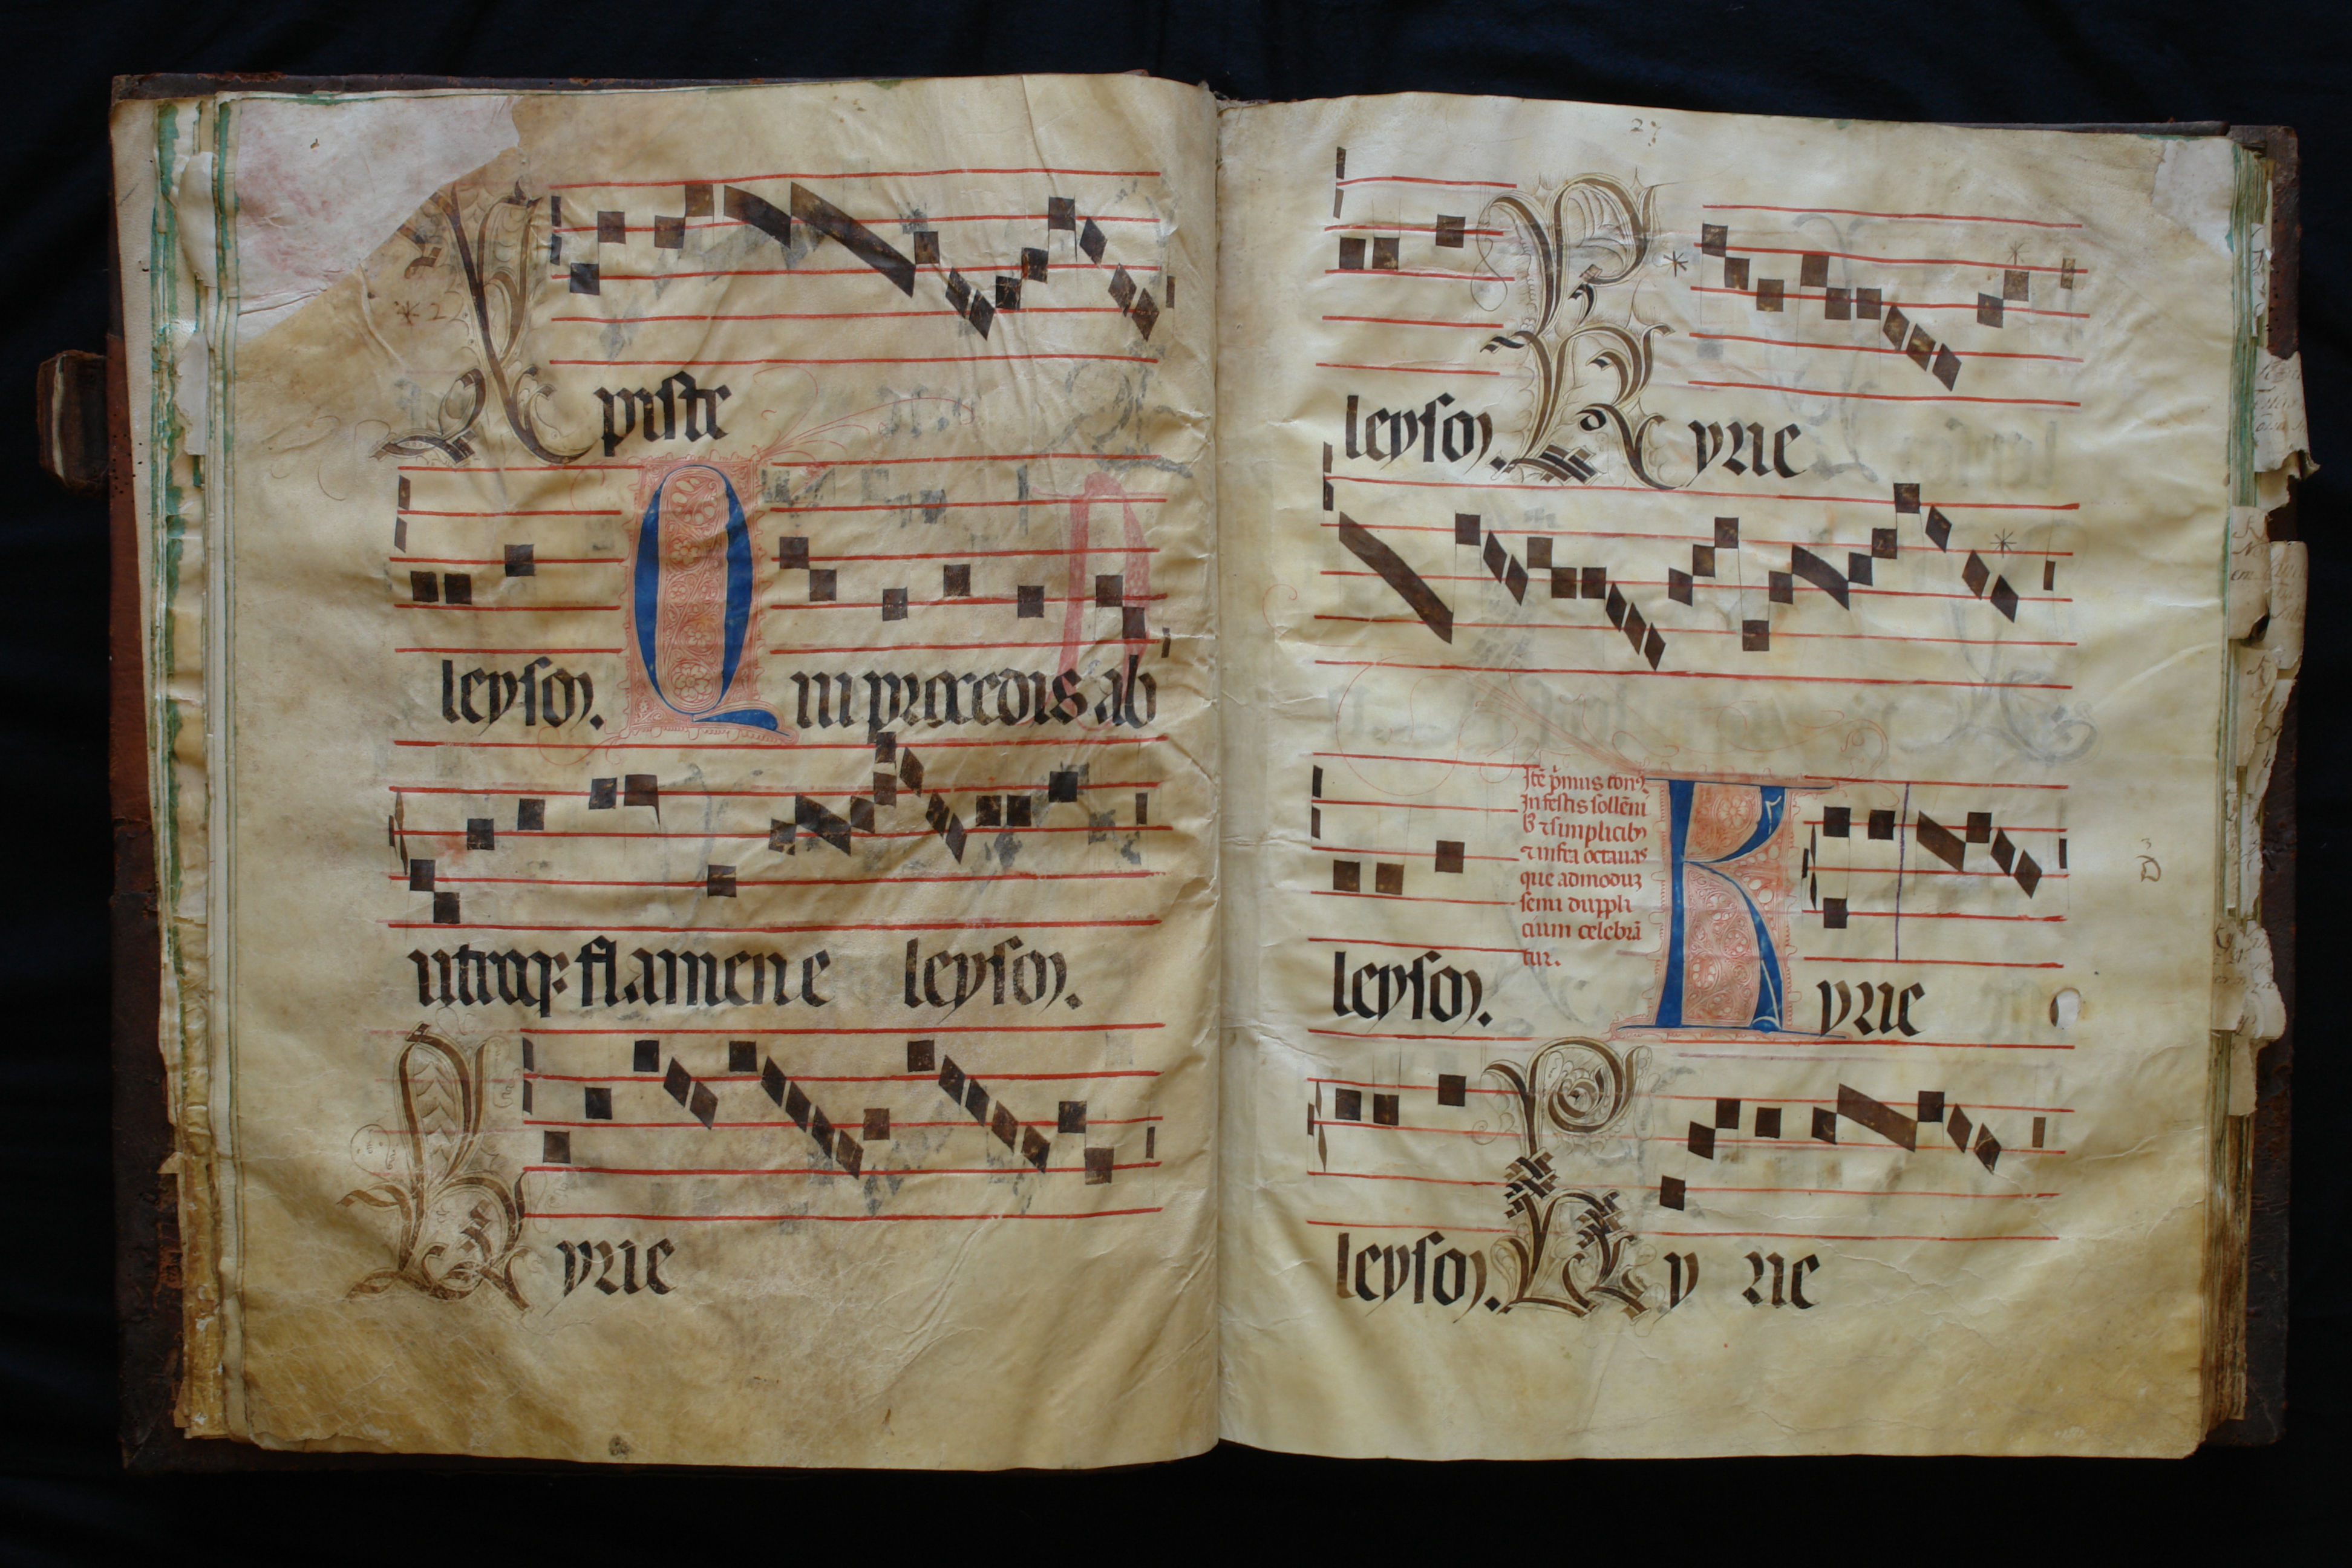 Xpiste
leyson. Qui procedis ab
utroqꝫ flamen e leyson.
Kyrie
27
leyson. Kyrie
Itē p̄mus ton
In festis sollēni
bꝫ ⁊ simplicibꝫ
⁊ infra octauas
que admoduꝫ
semi duppli
cium celebrā
tur.
leyson. Kyrie
leyson. Ky rie